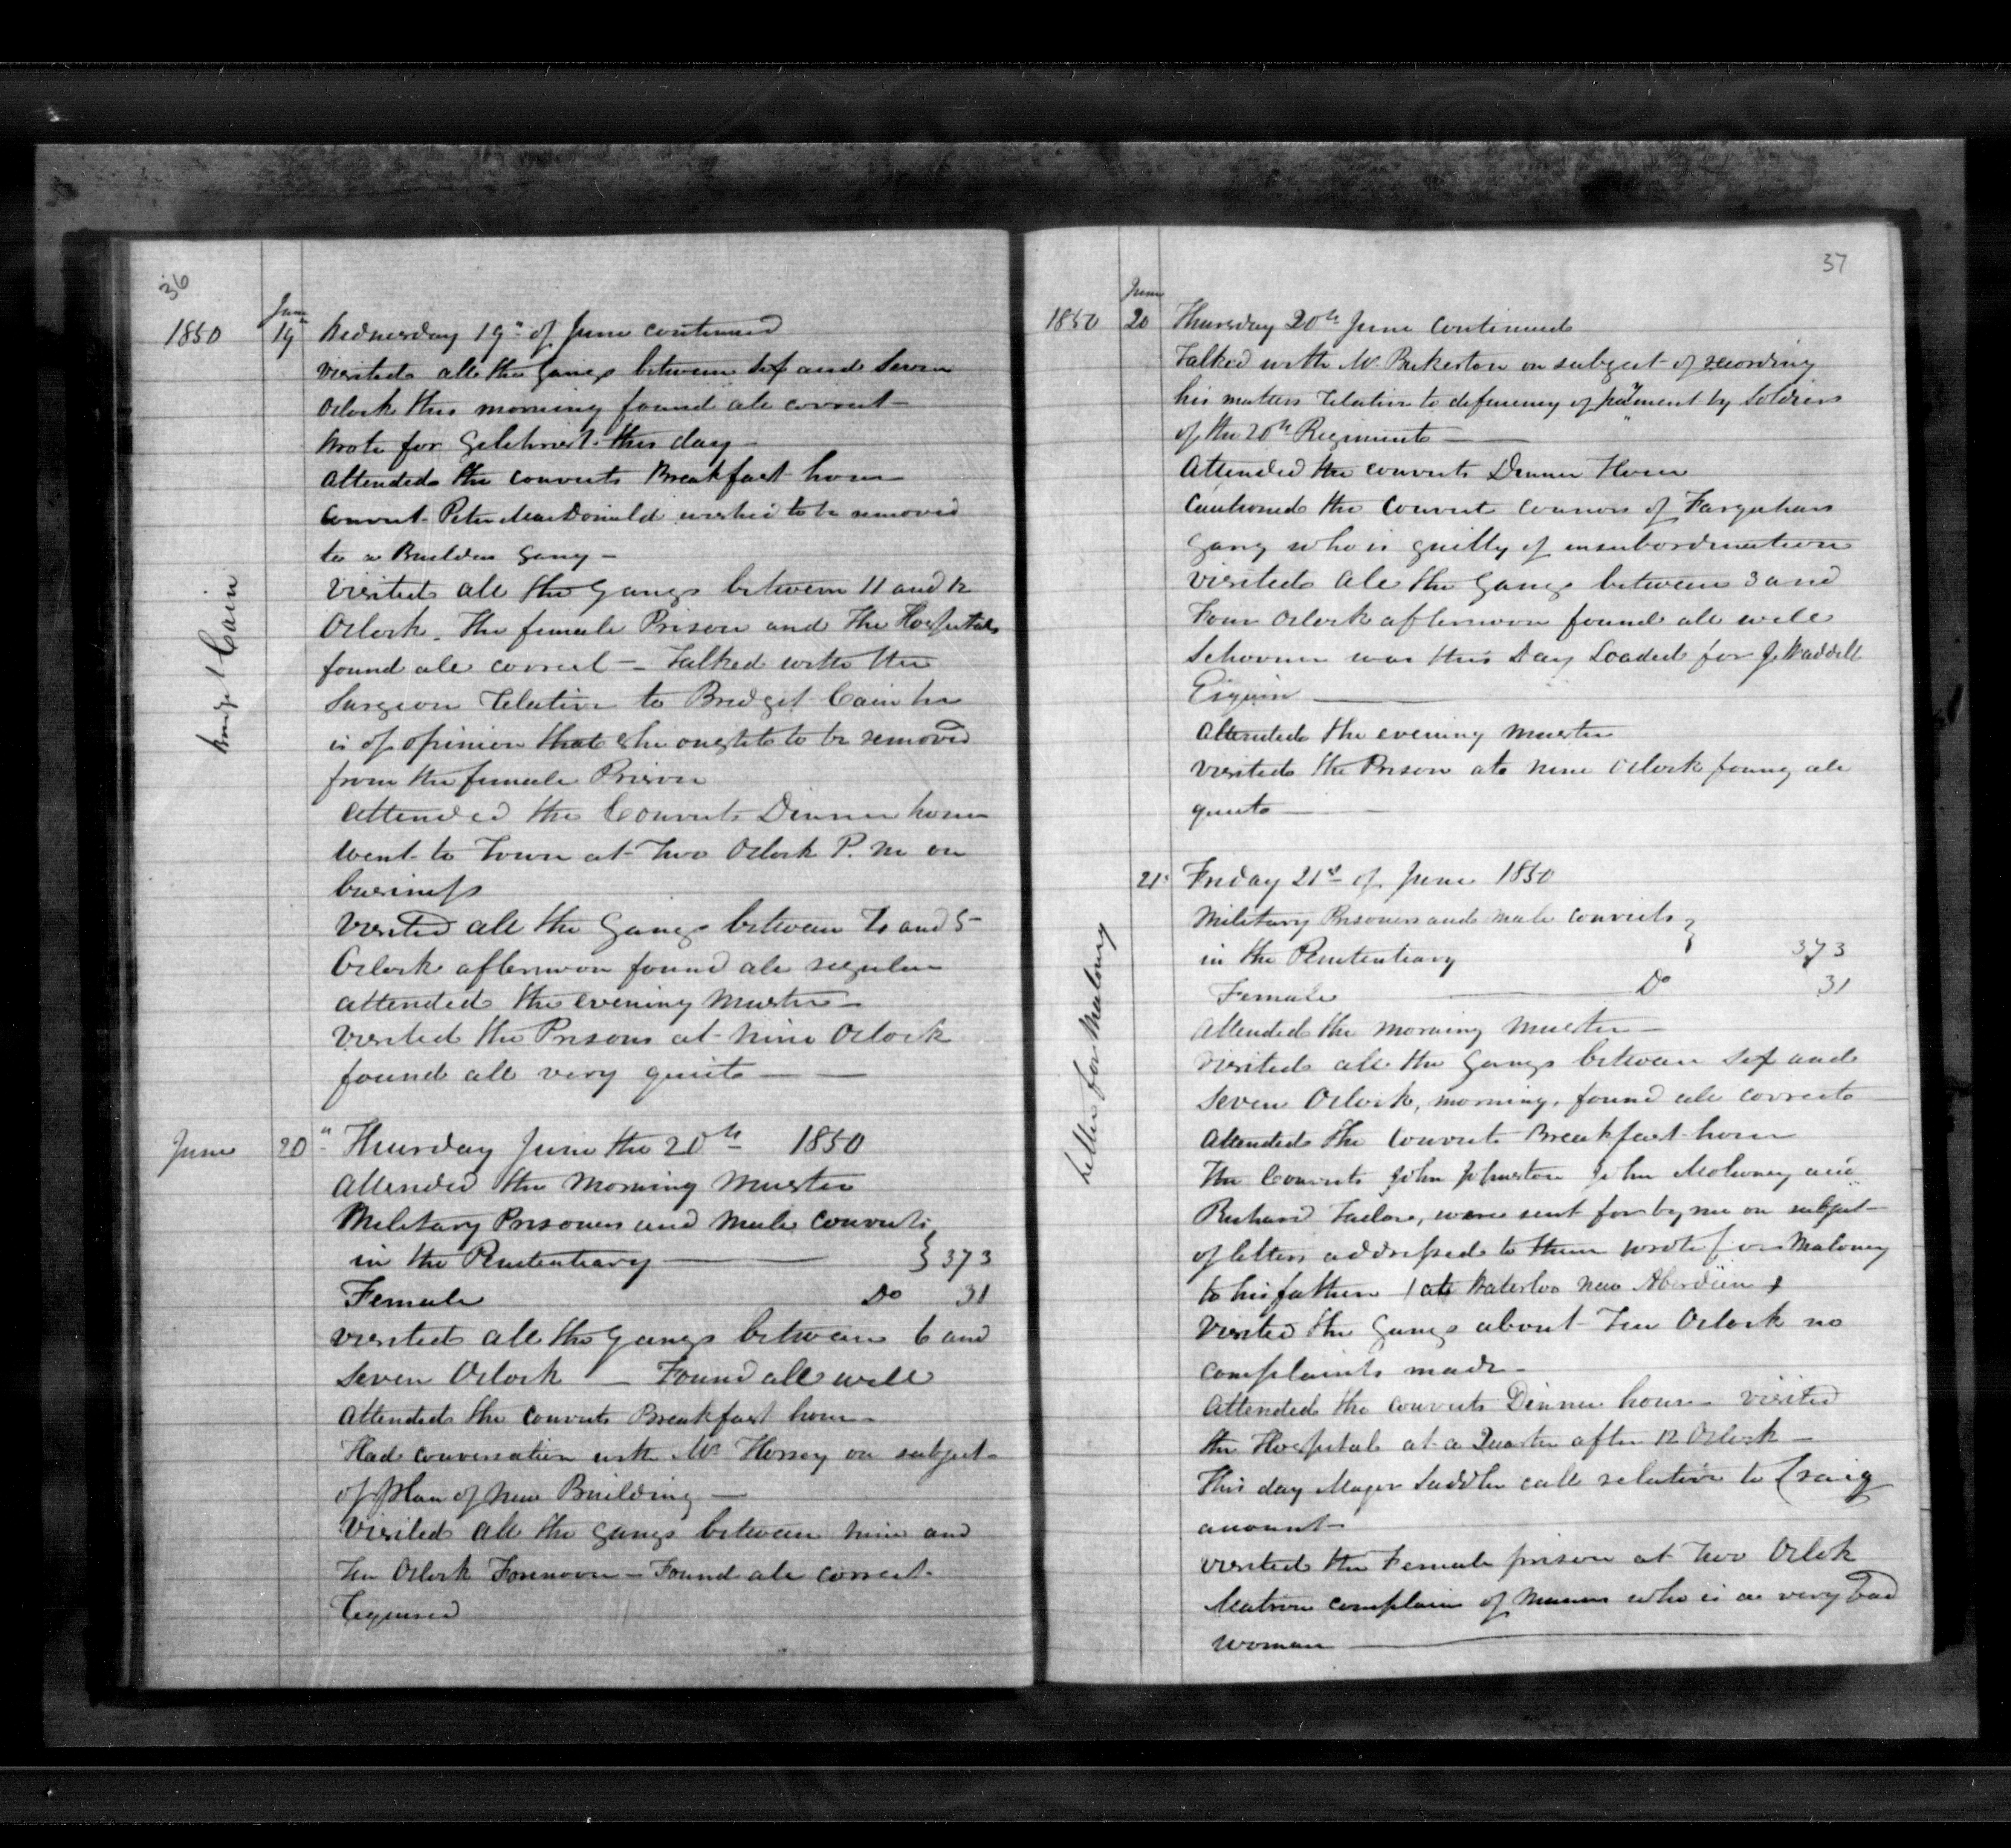 36
June
1850 19th Wednesday 19th of June continued
visited all the Gangs between Six and Seven
Oclock this morning found all correct
Wrote for Gilchrist this day
Attended the convicts Breakfast hour
Convict Peter MacDonald wished to be removed
to a Builders Gang
Visited all the Gangs between 11 and 12
Oclock. The female Prison and the Hospital
found all correct — Talked with the
Surgeon relative to Bridget Cain he
is of opinion that she ought to be removed
from the female Prison
Bridget Cain
Attended the Convicts Dinner hour
Went to Town at Two Oclock P. M on
business
Visited all the Gangs between and 5
Oclock afternoon found all regular
attended the evening Muster
Visited the Prisons at nine Oclock
found all very quiet — —
June 20" Thursday June the 20th 1850
Attended the Morning Muster
Military Prisoners and Male Convicts
in the Penitentiary — } 373
Female Do 31
visited all the Gangs between 6 and
Seven Oclock — Found all well
Attended the convicts Breakfast hour
Had conversation with Mr Horsey on subject
of plan of New Building —
Visited all the Gangs between nine and
Ten Oclock Forenoon — Found all correct

37
June
1850 20 Thursday 20th June Continued
Talked with Mr Pickerton on subject of recording
his matters relative to deficiency of payment by Soldiers
of the 20th Regiment — —
Attended the convicts Dinner Hour
Cautioned the Convict Connors of Farquhars
Gang who is guilty of insubordination
Visited all the Gangs between 3 and
Four Oclock afternoon found all well
Schooner was this Day Loaded for J. Waddell
Esquire —
Attended the evening Muster
Visited the Prison at nine Oclock foung all
quiet — —
21st Friday 21st of June 1850
Military Prisoners and Male Convicts }
in the Penitentiary 373
Female — Do 31
Attended the Morning Muster —
Visited all the Gangs between Six and
Seven Oclock, morning, found all correct
Attended the Convicts Breakfast hour
The Convicts John Johnston John Moloney and
Richard Tailor, were sent for by me on subject
of letters addressed to them wrote for Maloney
to his father at Waterloo New Aberdeen
Letter for Maloney
Visited the Gangs about Ten Oclock no
complaints made —
Attended the convicts Dinner hour — visited
the Hospital at a Quarter after 12 Oclock —
This day Major Saddler call relative to Craig
amount —
visited the Female prison at Two Oclok
Matron complain of who is a very bad
woman —